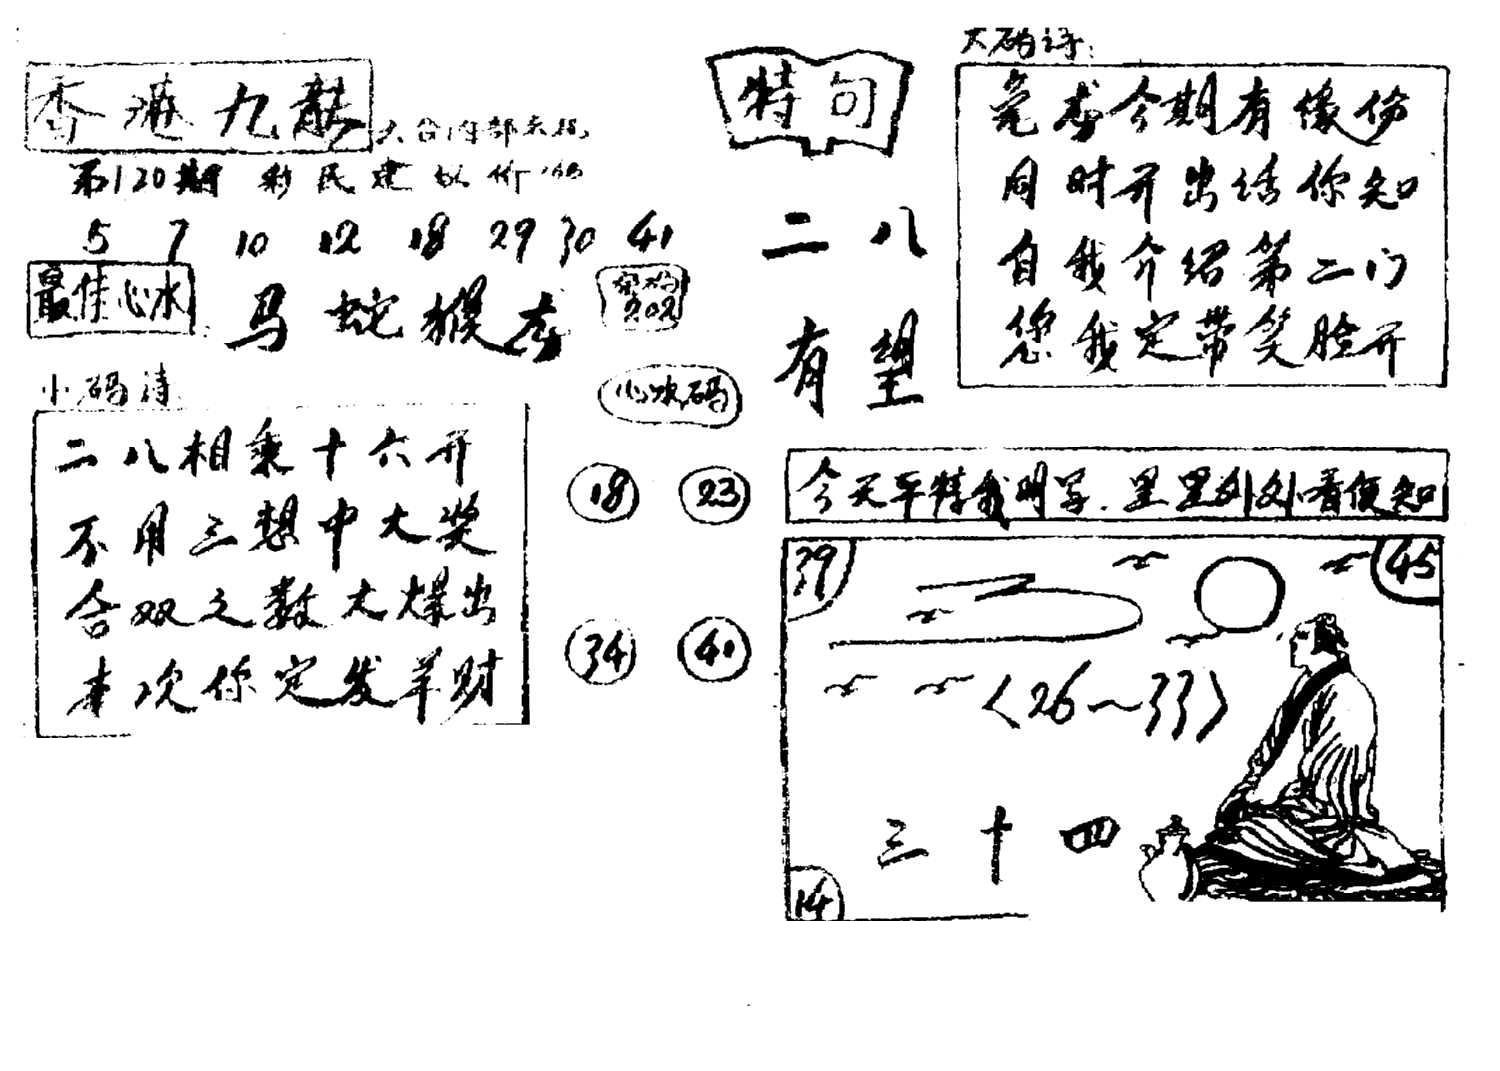 香港九龍
第120期 彩民建
5 7 10 12 18 29 30 41
最佳心水 马 蛇 猴
小码诗
二八相乘十六开
不用三想中大奖
合双之数大爆出
本次你定发羊财
心水码
18 23
34 41
特句
二八
有望
大码诗:
今期有缘份
同时开出话你知
自我介绍第二门
您我定带笑脸开
今天平特我明写.里里外外看便知
39 45
(26~33)
三十四
14